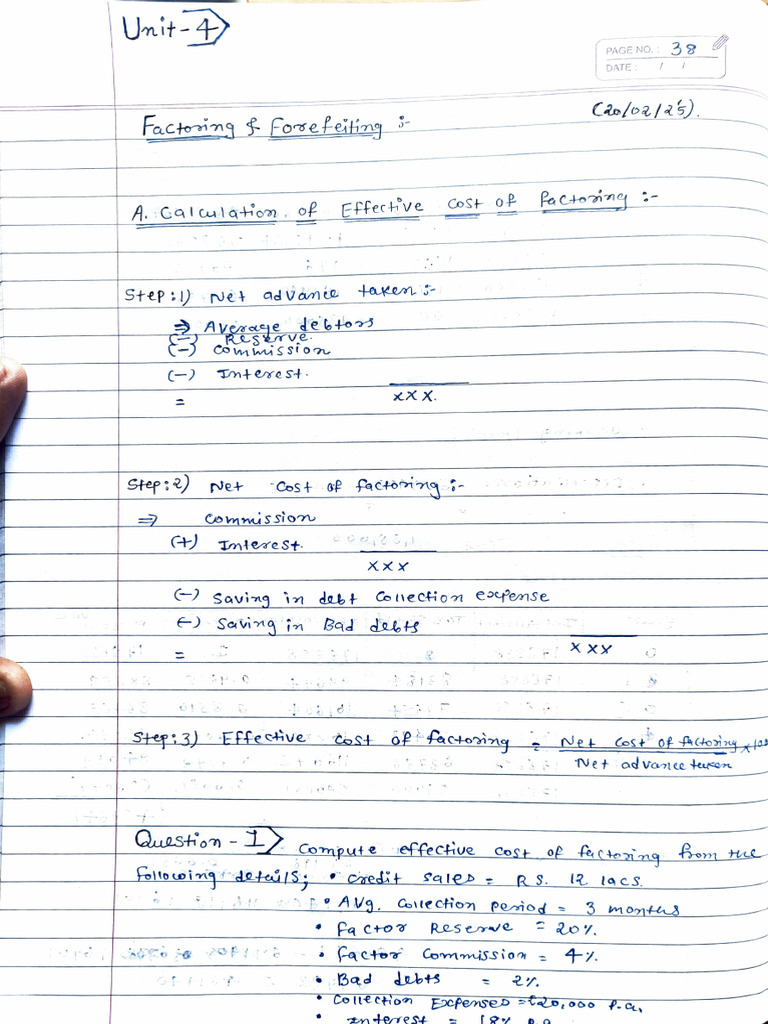 Unit-4
PAGE NO.: 38
DATE: / /
(20/02/25).
Factoring & Forefeiting :-
A. Calculation of Effective cost of factoring :-
Step:1) Net advance taken :-
⇒ Average debtors
(-) Reserve.
(-) Commission
(-) Interest.
= xxx.
Step:2) Net cost of factoring :-
⇒ Commission
(+) Interest.
xxx
(-) Saving in debt collection expense
(-) Saving in Bad debts
= xxx
Step:3) Effective cost of factoring = Net cost of factoring x100
Net advance taken
Question - 1 Compute effective cost of factoring from the
following details; • credit sales = RS. 12 lacs.
• Avg. collection period = 3 months
• Factor Reserve = 20%.
• Factor Commission = 4%.
• Bad debts = 2%.
• Collection Expenses = ₹20,000 p.a.
• Interest = 18% p.a.